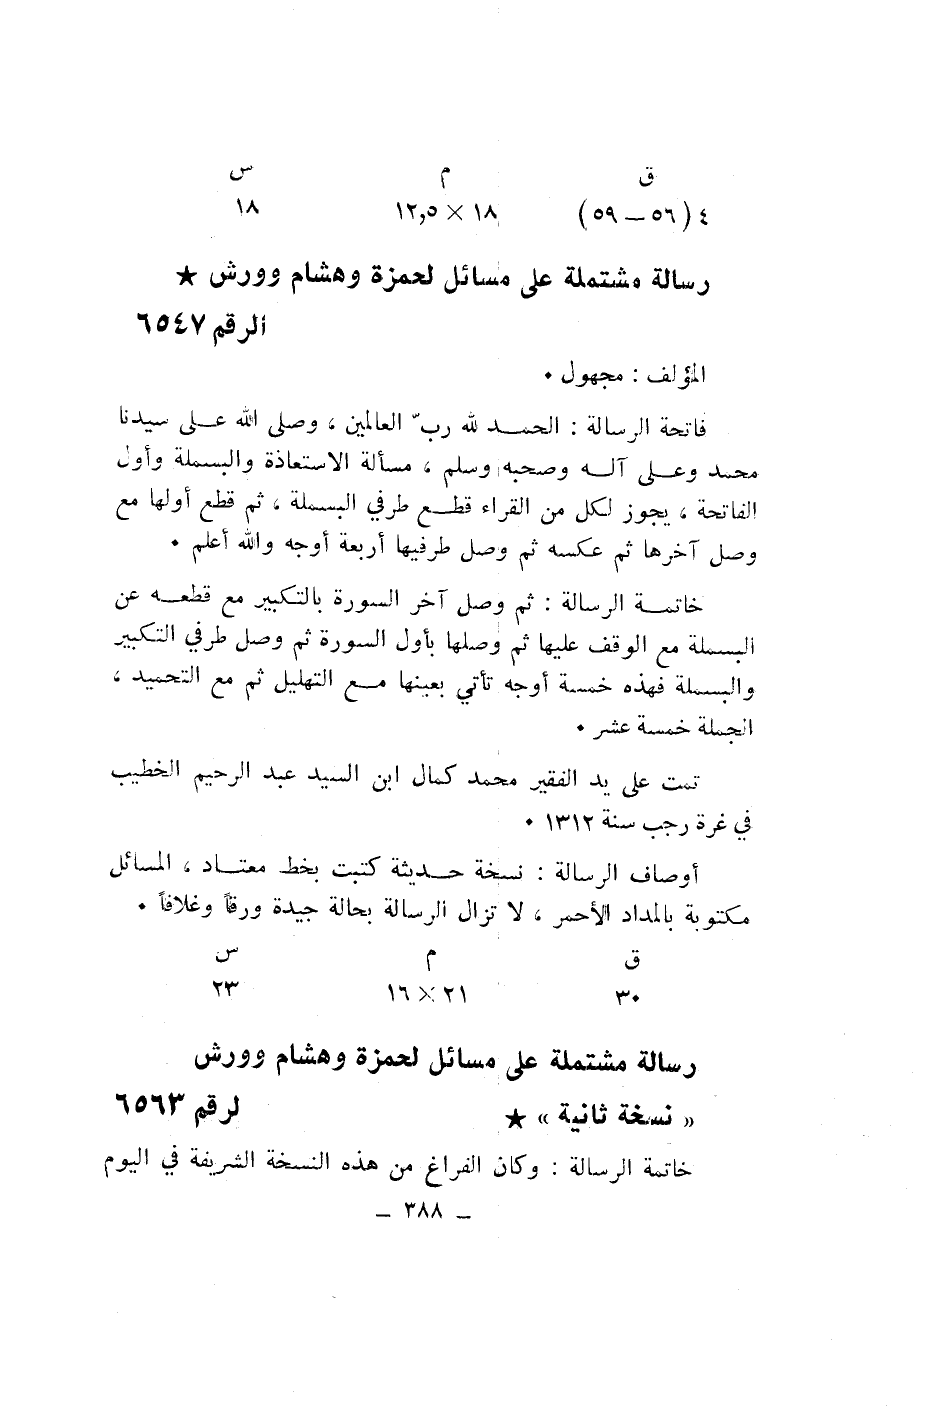 ق م س
٤ (٥٦ – ٥٩) ١٨ × ١٢٫٥ ١٨
رسالة مشتملة على مسائل لحمزة وهشام وورش ★
الرقم ٦٥٤٧
المؤلف : مجهول ٠
فاتحة الرسالة : الحمد لله ربّ العالمين ، وصلى الله على سيدنا
محمد وعلى آله وصحبه وسلم ، مسألة الاستعاذة والبسملة وأول
الفاتحة ، يجوز لكل من القراء قطع طرفي البسملة ، ثم قطع أولها مع
وصل آخرها ثم عكسه ثم وصل طرفيها أربعة أوجه والله أعلم ٠
خاتمة الرسالة : ثم وصل آخر السورة بالتكبير مع قطعه عن
البسملة مع الوقف عليها ثم وصلها بأول السورة ثم وصل طرفي التكبير
والبسملة فهذه خمسة أوجه تأتي بعينها مع التهليل ثم مع التحميد ،
الجملة خمسة عشر ٠
تمت على يد الفقير محمد كمال ابن السيد عبد الرحيم الخطيب
في غرة رجب سنة ١٣١٢ ٠
أوصاف الرسالة : نسخة حديثة كتبت بخط معتاد ، المسائل
مكتوبة بالمداد الأحمر ، لا تزال الرسالة بحالة جيدة ورقاً وغلافاً ٠
ق م س
٣٠ ٢١ × ١٦ ٢٣
رسالة مشتملة على مسائل لحمزة وهشام وورش
« نسخة ثانية » ★ لرقم ٦٥٦٣
خاتمة الرسالة : وكان الفراغ من هذه النسخة الشريفة في اليوم
– ٣٨٨ –